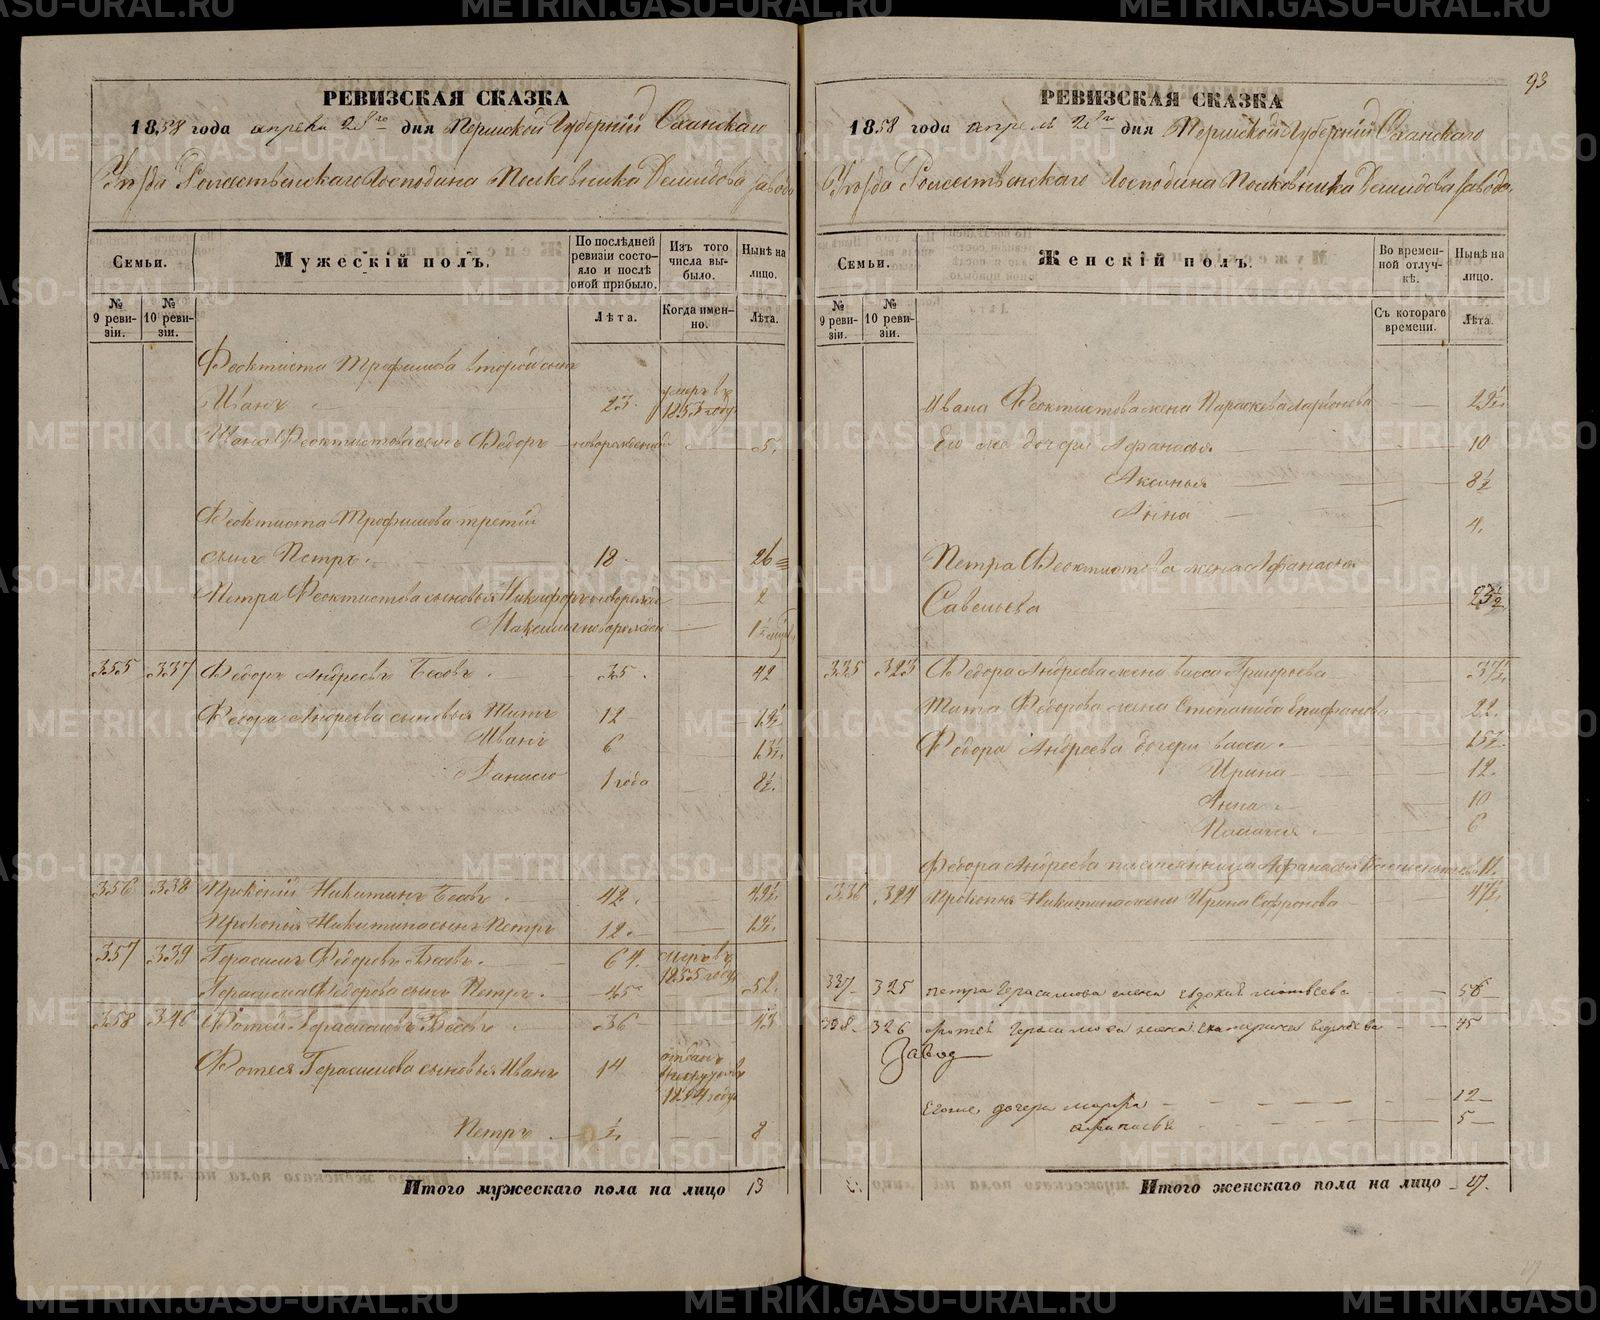 93
РЕВИЗСКАЯ СКАЗКА
1858 года апреля 28го дня Пермской Губернiи Оханскаго
Уѣзда Рождественскаго Господина Полковника Демидова завода
Семьи.
Мужескiй полъ.
По послѣдней ревизiи состояло и послѣ оной прибыло.
Изъ того числа выбыло.
Нынѣ на лицо.
№ 9 ревизiи.
№ 10 ревизiи.
Лѣта.
Когда именно.
Лѣта.
Феоктиста Трофимова второй сынъ
Иванъ 23. умеръ въ 1853 году
Ивана Феоктистова сынъ Федоръ новорожденный 5.
Феоктиста Трофимова третiй
сынъ Петръ. 18. 26
Петра Феоктистова сыновья Никифоръ новорожден 2
Максимъ новорожден
355 337 Федоръ Андреевъ 35. 42
Федора Андреева сыновья Титъ 12 19½
Иванъ 6 13½
Данило 1 года 8½.
356 338 Прокопiй Никитинъ 42. 49½.
Прокопья Никитина сынъ Петръ 12. 19½.
357 339 Герасимъ Федоровъ 64. умеръ въ 1855 году
Герасима Федорова сынъ Петръ. 45 52.
358 340 Фотей Герасимовъ 36 43
Фотея Герасимова сыновья Иванъ 14 отданъ в рекруты въ 1854 году
Петръ ½. 8
Итого мужескаго пола на лицо 13
РЕВИЗСКАЯ СКАЗКА
1858 года апреля 28го дня Пермской Губернiи Оханскаго
Уѣзда Рождественскаго Господина Полковника Демидова завода
Семьи.
Женскiй полъ.
Во временной отлучкѣ.
Нынѣ на лицо.
№ 9 ревизiи.
№ 10 ревизiи.
Съ котораго времени.
Лѣта.
Ивана Феоктистова жена Парасковья Ларiонова 29½.
Его же дочери Афанасья 10
Аксинья 8½
Анна 4.
Петра Феоктистова жена Афанасья
Савельева 23½
335 323 Федора Андреева жена Васса Григорьева 37½.
Тита Федорова жена Степанида Епифанова 22.
Федора Андреева дочери Васса. 15½.
Ирина 12.
Анна. 10
Пелагея. 6
Федора Андреева племянница Афанасья 11.
336 324 Прокопья Никитина жена Ирина Софронова 47½.
337 325 Петра Герасимова жена Евдокия Матвеева 56
338. 326 Фотея Герасимова жена Екатерина 45
Завод
Его же дочери Марфа 12
Афанасья 5
Итого женскаго пола на лицо 17.
METRIKI.GASO-URAL.RU